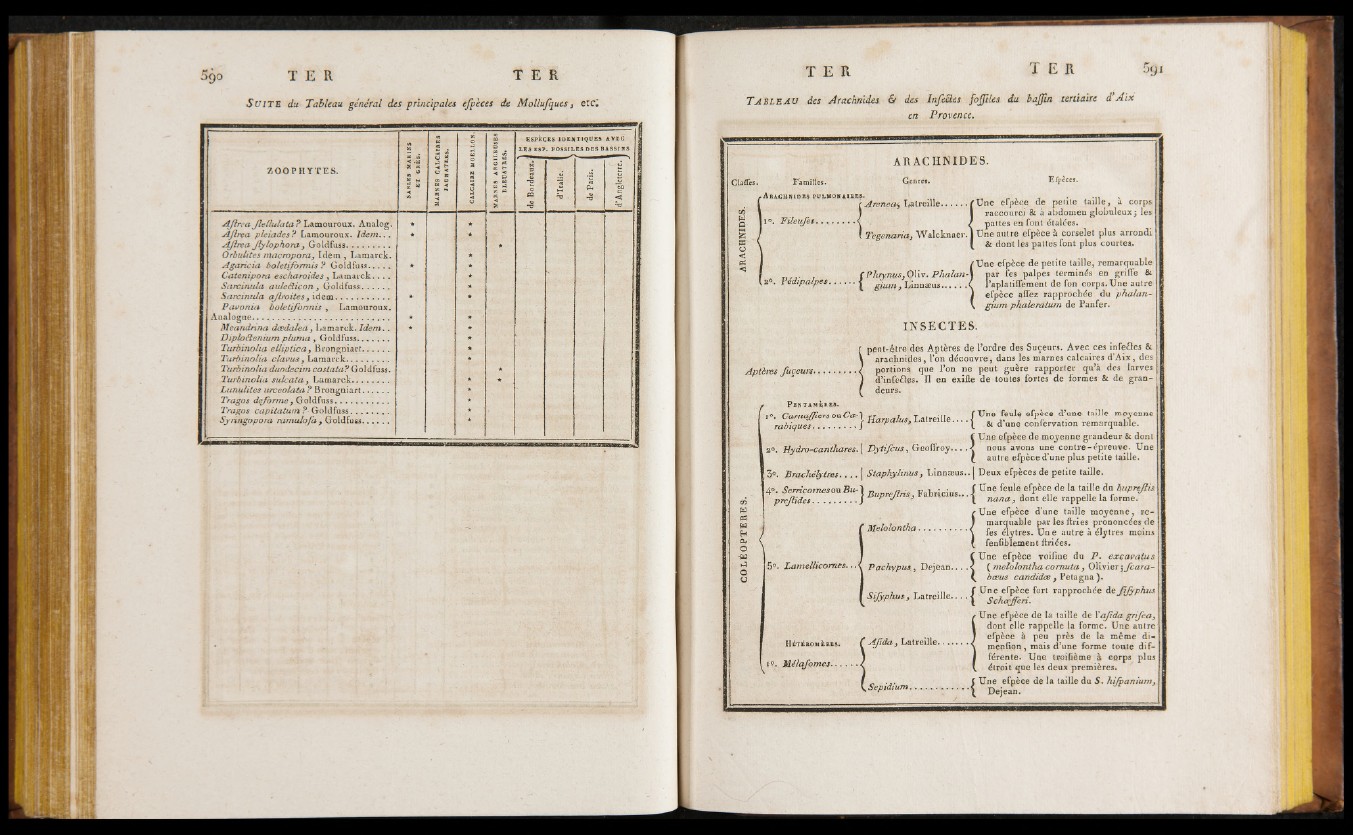 590 TER TER
SUITE du Tableau général des principales eſpèces de Molluſques, etc.
ZOOPHYTES.
SABLES MARINS ET GRÈS.
MARNES CALCAIRES JAUNATRES.
CALCAIRE MOELLON.
MARNES ARGILEUSES BLEUATRES.
ESPÈCES IDENTIQUES AVEC
LES ESP. FOSSILES DES BASSINS
de Bordeaux.
d'Italie.
de Paris.
d'Angleterre.
Aſtrea ſtellulata? Lamouroux. Analog. * *
Aſtrea pleiades? Lamouroux. Idem... * *
Aſtrea ſtylophora, Goldfuss......... *
Orbulites macropora, Idem, Lamarck. *
Agaricia boletiformis? Goldfuss..... * *
Catenipora escharoides, Lamarck.... *
Sarcinula auleticon, Goldfuss...... *
Sarcinula aſtroites, idem............ * *
Pavonia boletiformis, Lamouroux.
Analogue......................... * *
Meandrina dædalea, Lamarck. Idem.. * *
Diploctenium pluma, Goldfuss....... *
Turbinolia elliptica, Brongniart...... *
Turbinolia clavus, Lamarck......... *
Turbinolia duodecim costata? Goldfuss. *
Turbinolia sulcata, Lamarck........ * *
Lunulites urceolata? Brongniart...... *
Tragos deforme, Goldfuss........... *
Tragos capitatum? Goldfuss........ *
Syringopora ramuloſa, Goldfuss...... *
TER TER 591
TABLEAU des Arachnides & des Inſectes foſſiles du baſſin tertiaire d'Aix
en Provence.
ARACHNIDES.
Claſſes. Familles. Genres. Eſpèces.
ARACHNIDES.
ARACHNIDES PULMONAIRES.
1°. Fileuſes........
Aranea, Latreille......
Une eſpèce de petite taille, à corps
raccourci & à abdomen globuleux; les
pattes en font étalées.
Tegenaria, Walcknaer.
Une autre eſpèce à corselet plus arrondi
& dont les pattes font plus courtes.
2°. Pédipalpes......
Phrynus, Oliv. Phalan-
gium, Linnæus......
Une eſpèce de petite taille, remarquable
par ſes palpes terminés en griffe &
l'aplatiſſement de ſon corps. Une autre
eſpèce aſſez rapprochée du phalan-
gium phaleratum de Panſer.
INSECTES.
Aptères ſuçeurs.........
peut-être des Aptères de l'ordre des Suçeurs. Avec ces inſectes &
arachnides, l'on découvre, dans les marnes calcaires d'Aix, des
portions que l'on ne peut guère rapporter qu'à des larves
d'inſectes. Il en exiſte de toutes ſortes de formes & de gran-
deurs.
COLÉOPTÈRES.
PENTAMÈRES.
1°. Carnaſſiers ou Ca-
rabiques.........
Harpalus, Latreille....
Une ſeule eſpèce d'une taille moyenne
& d'une conſervation remarquable.
2°. Hydro-canthares.
Dytiſcus, Geoffroy....
Une eſpèce de moyenne grandeur & dont
nous avons une contre-épreuve. Une
autre eſpèce d'une plus petite taille.
3°. Brachélytres....
Staphylinus, Linnæus..
Deux eſpèces de petite taille.
4°. Serricornes ou Bu-
preſtides.........
Bupreſtris, Fabricius...
Une ſeule eſpèce de la taille du bupreſtis
nana, dont elle rappelle la forme.
5°. Lamellicornes...
Melolontha..........
Une eſpèce d'une taille moyenne, re-
marquable par les ſtries prononcées de
ſes élytres. Une autre à élytres moins
ſenſiblement ſtriées.
Pachypus, Dejean....
Une eſpèce voiſine du P. excavatus
(melolontha cornuta, Olivier; ſcara-
bæus candidæ, Petagna).
Siſyphus, Latreille....
Une eſpèce fort rapprochée de ſiſyphus
Schæfferi.
HÉTÉROMÈRES.
1°. Mélaſomes......
Aſida, Latreille.......
Une eſpèce de la taille de l'aſida griſea,
dont elle rappelle la forme. Une autre
eſpèce à peu près de la même di-
menſion, mais d'une forme toute dif-
férente. Une troiſième à corps plus
étroit que les deux premières.
Sepidium..........
Une eſpèce de la taille du S. hiſpanium,
Dejean.